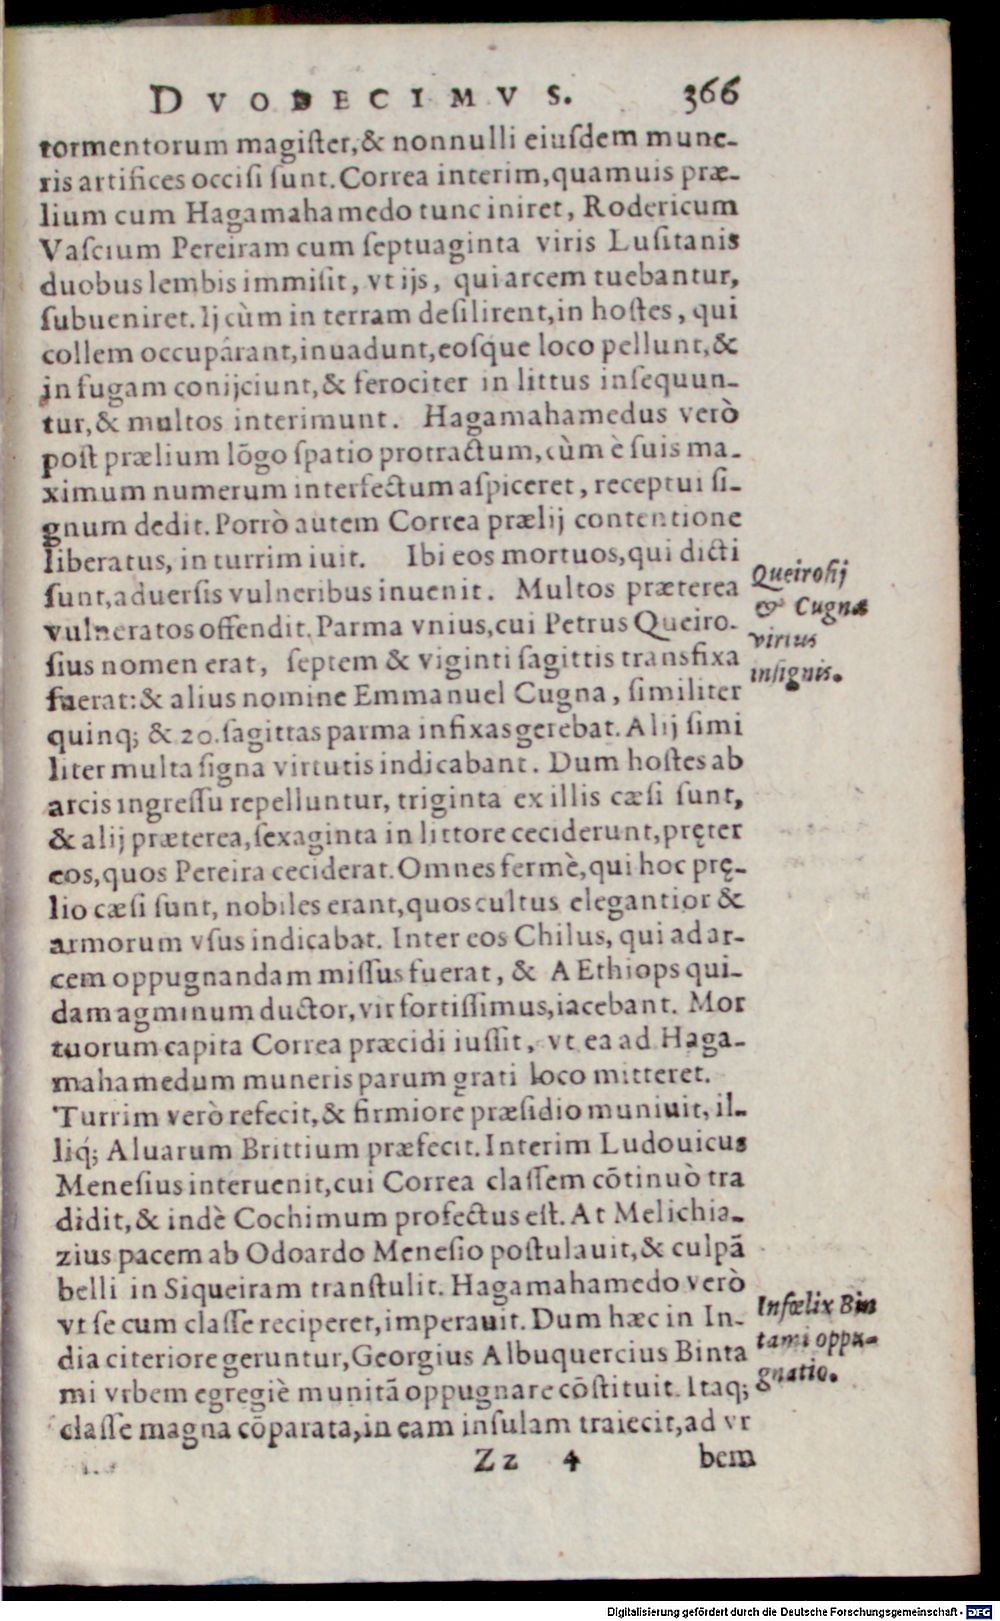 DVODECIMVS. 366
tormentorum magiſter, & nonnulli eiuſdem mune-
ris artifices occiſi ſunt. Correa interim, quamuis præ-
lium cum Hagamahamedo tunc iniret, Rodericum
Vaſcium Pereiram cum ſeptuaginta viris Luſitanis
duobus lembis immiſit, vt ijs, qui arcem tuebantur,
ſubueniret. Ij cùm in terram deſilirent, in hoſtes, qui
collem occupârant, inuadunt, eoſque loco pellunt, &
in fugam conijciunt, & ferociter in littus inſequun-
tur, & multos interimunt. Hagamahamedus verò
poſt prælium lōgo ſpatio protractum, cùm è ſuis ma-
ximum numerum interfectum aſpiceret, receptui ſi-
gnum dedit. Porrò autem Correa prælij contentione
liberatus, in turrim iuit. Ibi eos mortuos, qui dicti
ſunt, aduerſis vulneribus inuenit. Multos præterea
Queiroſij
vulneratos offendit. Parma vnius, cui Petrus Queiro-
& Cugnæ
ſius nomen erat, ſeptem & viginti ſagittis transfixa
virtus
fuerat: & alius nomine Emmanuel Cugna, ſimiliter
inſignis.
quinq; & 20. ſagittas parma infixas gerebat. Alij ſimi
liter multa ſigna virtutis indicabant. Dum hoſtes ab
arcis ingreſſu repelluntur, triginta ex illis cæſi ſunt,
& alij præterea, ſexaginta in littore ceciderunt, pręter
eos, quos Pereira ceciderat. Omnes fermè, qui hoc prę-
lio cæſi ſunt, nobiles erant, quos cultus elegantior &
armorum vſus indicabat. Inter eos Chilus, qui ad ar-
cem oppugnandam miſſus fuerat, & AEthiops qui-
dam agminum ductor, vir fortiſſimus, iacebant. Mor
tuorum capita Correa præcidi iuſſit, vt ea ad Haga-
mahamedum muneris parum grati loco mitteret.
Turrim verò refecit, & firmiore præſidio muniuit, il-
liq́; Aluarum Brittium præfecit. Interim Ludouicus
Meneſius interuenit, cui Correa claſſem cōtinuò tra
didit, & indè Cochimum profectus eſt. At Melichia-
zius pacem ab Odoardo Meneſio poſtulauit, & culpā
belli in Siqueiram tranſtulit. Hagamahamedo verò
vt ſe cum claſſe reciperet, imperauit. Dum hæc in In-
Infœlix Bin
dia citeriore geruntur, Georgius Albuquercius Binta
tami oppu-
mi vrbem egregiè munitā oppugnare cōſtituit. Itaq;
gnatio.
claſſe magna cōparata, in eam inſulam traiecit, ad vr
Zz 4 bem
Digitalisierung gefördert durch die Deutsche Forschungsgemeinschaft - DFG